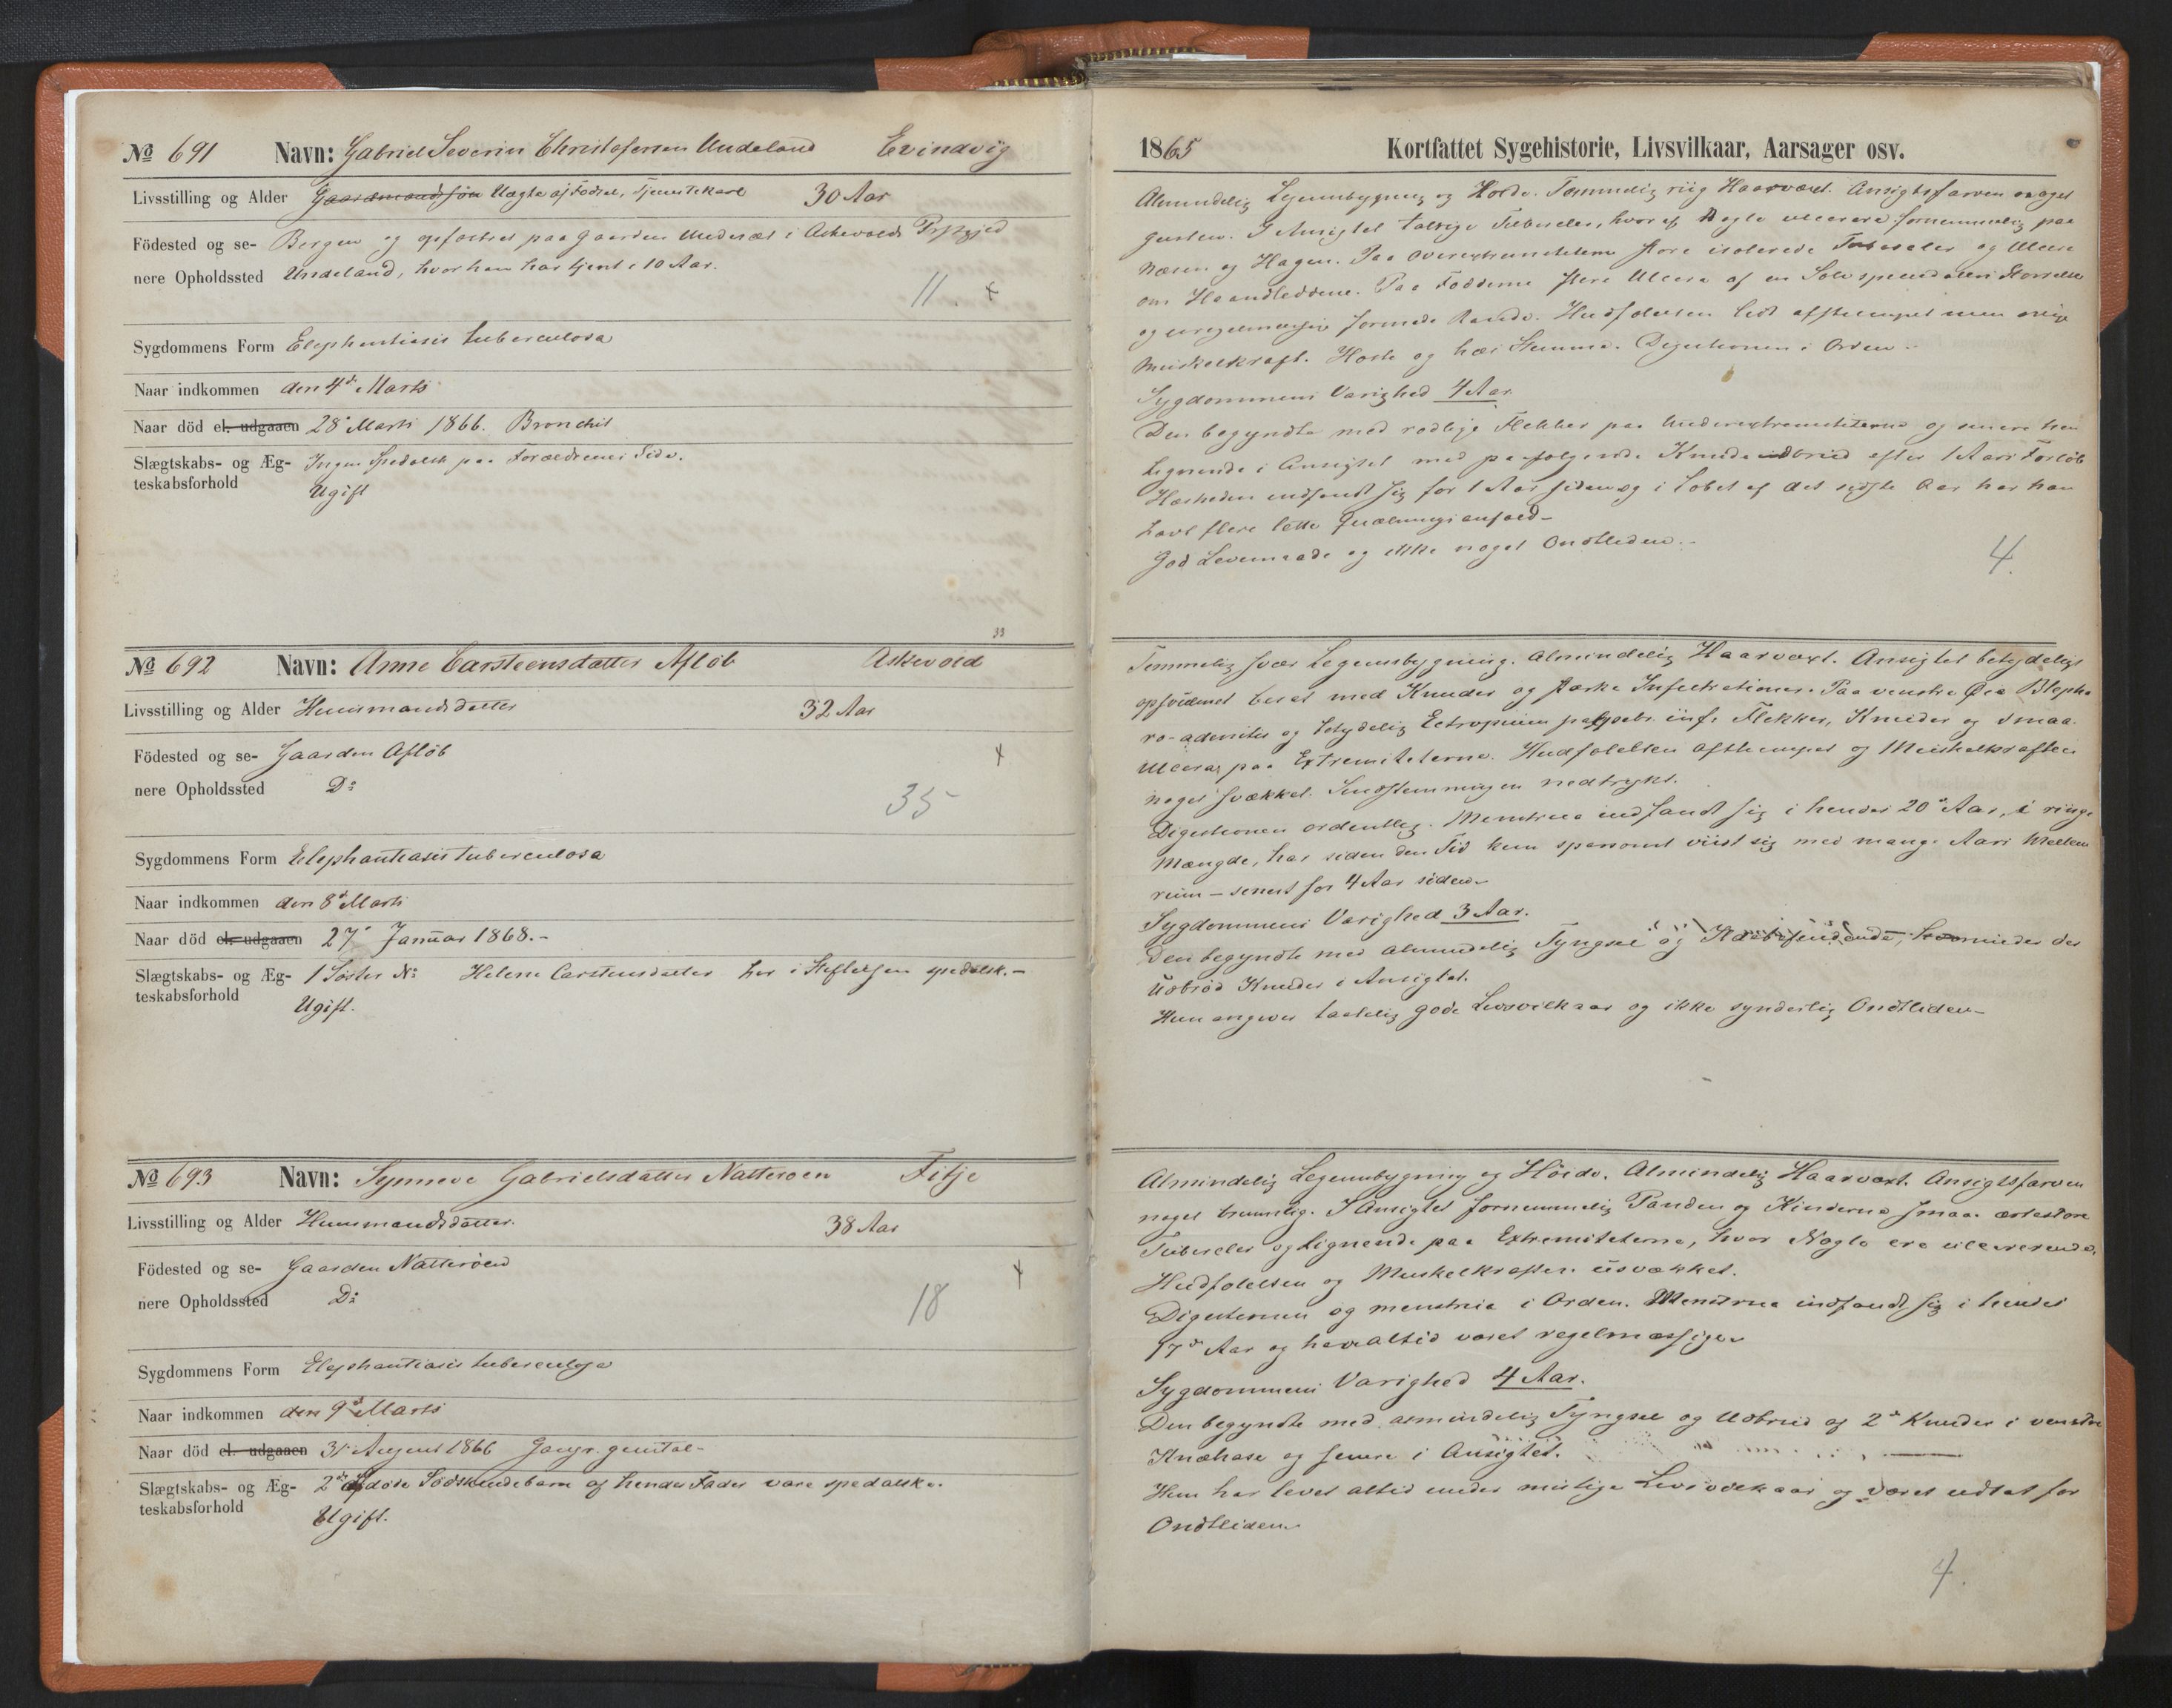 № 691 Navn: Gabriel Severin Christofersen Undeland Evindvig
Livsstilling og Alder Gaardmandssøn Uægte af Fødsel, Tjenestekarl 30 Aar
Födested og se- Bergen og opfostret paa Gaarden i Askevold Præstgjed
nere Opholdssted Undeland, hvor han har tjent i 10 Aar.
11. x
Sygdommens Form Elephantiasis tuberculosa
Naar indkommen den 4de Marts
Naar död el. udgaaen 28de Marts 1866. Bronchit
Slægtskabs- og Æg- Ingen Spedalsk paa Forældrenes Side.
teskabsforhold Ugift
33
№ 692 Navn: Anne Carsteensdatter Afløb Askevold
Livsstilling og Alder Huusmandsdatter 32 Aar
Födested og se- Gaarden Afløb x
nere Opholdssted Do
35
Sygdommens Form Elephantiasis tuberculosa
Naar indkommen den 8de Marts
Naar död el. udgaaen 27de Januar 1868.-
Slægtskabs- og Æg- 1 Søster No Helene Carstensdatter her i Stiftelsen spedalsk.-
teskabsforhold Ugift.
№ 693 Navn: Synneve Gabrielsdatter Natterøen Fitje
Livsstilling og Alder Huusmandsdatter. 38 Aar
Födested og se- Gaarden Natterøen x
nere Opholdssted Do
18
Sygdommens Form Elephantiasis tuberculosa
Naar indkommen den 9de Marts
Naar död el. udgaaen 31 August 1866 Gangr. genital-
Slægtskabs- og Æg- 2de afdøde Sødskendebarn af hendes Fader vare spedalske.
teskabsforhold Ugift.
1865 Kortfattet Sygehistorie, Livsvilkaar, Aarsager osv.
Almindelig Legemsbygning og Holde. Temmelig riig Haarvæxt. Ansigtsfarven noget
gusten. I Ansigtet talrige Tubercler, hvoraf Nogle ulcerere fornemmelig paa
Næsen og Hagen. Paa Overextremiteterne store isolerede Tubercler og Ulcera
om Haandleddene. Paa Fødderne flere Ulcera af en Sølvspeciedalers Størrelse
og uregelmæssig formede Rande. Hudfølelsen lidt afstumpet men
Muskelkraft. Hoste og hæs Stemme. Digestionen i Orden.-
Sygdommens Varighed 4 Aar.
Den begyndte med rødlige Flekker paa Underextremiteterne og senere hen
Lignende i Ansigtet med paafølgende Knudeudbrud efter 1 Aars Forløb
Hæsheden indfandt sig for 1 Aar siden og i Løbet af det sidste Aar har han
havt flere lette Quælningsanfald-
God Levemaade og ikke noget Ondtliden.-
4.
Temmelig svær Legemsbygning. Almindelig Haarvæxt. Ansigtet betydeligt
opsvulmet besat med Knuder og stærke Infiltrationer. Paa venstre Øie Blepha
ro-adenitis og betydelig Ectropium palpebr. inf. Flekker, Knuder og smaa
Ulcera paa Extremiteterne. Hudfølelsen afstumpet og Muskelkraften
noget svækket. Sindstemningen nedtrykt.
Digestionen ordentlig. Menstrua indfandt sig i hendes 20de Aar, i ringe
Mængde, har siden den Tid kun sparsomt viist sig med mange Aars Mellem
rum - senest for 4 Aar siden.
Sygdommens Varighed 3 Aar.
Den begyndte med almindelig Tyngsel og
Udbrød Knuder i Ansigtet.
Hun angiver taalelig gode Livsvilkaar og ikke synderlig Ondtliden-
Almindelig Legemsbygning og Høide. Almindelig Haarvæxt. Ansigtsfarven
noget bruunlig. I Ansigtet fornemmelig Panden og Kinderne smaa ertestore
Tubercler og Lignende paa Extremiteterne, hvor Nogle ere ulcererende.
Hudfølelsen og Muskelkraften usvækket.
Digestionen og menstrua i Orden. Menstrua indfandt sig i hendes
17de Aar og have altid været regelmæssige.
Sygdommens Varighed 4 Aar.
Den begyndte med almindelig Tyngsel og Udbrud af 2de Knuder i venstre
Knæhase og senere i Ansigtet.
Hun har levet altid under mislige Livsvilkaar og været udsat for
Ondtliden.
4.